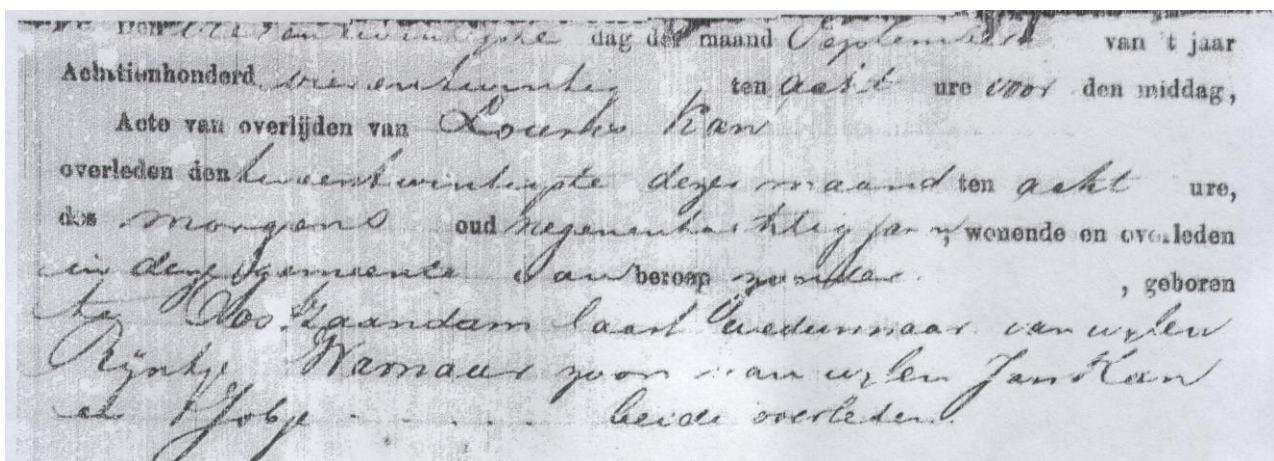 Den drie en twintigste dag der maand September van 't jaar
Achttienhonderd vierentwintig ten acht ure voor den middag,
Acte van overlijden van Lourens Kan
overleden den tweeentwintigste dezer maand ten acht ure,
des morgens oud negenentachtig jaar, wonende en overleden
in deze gemeente van beroep zonder , geboren
te Oostzaandam laast Weduwnaar van wylen
Rÿntje Warnaar zoon van wylen Jan Kan
en beide overleden.